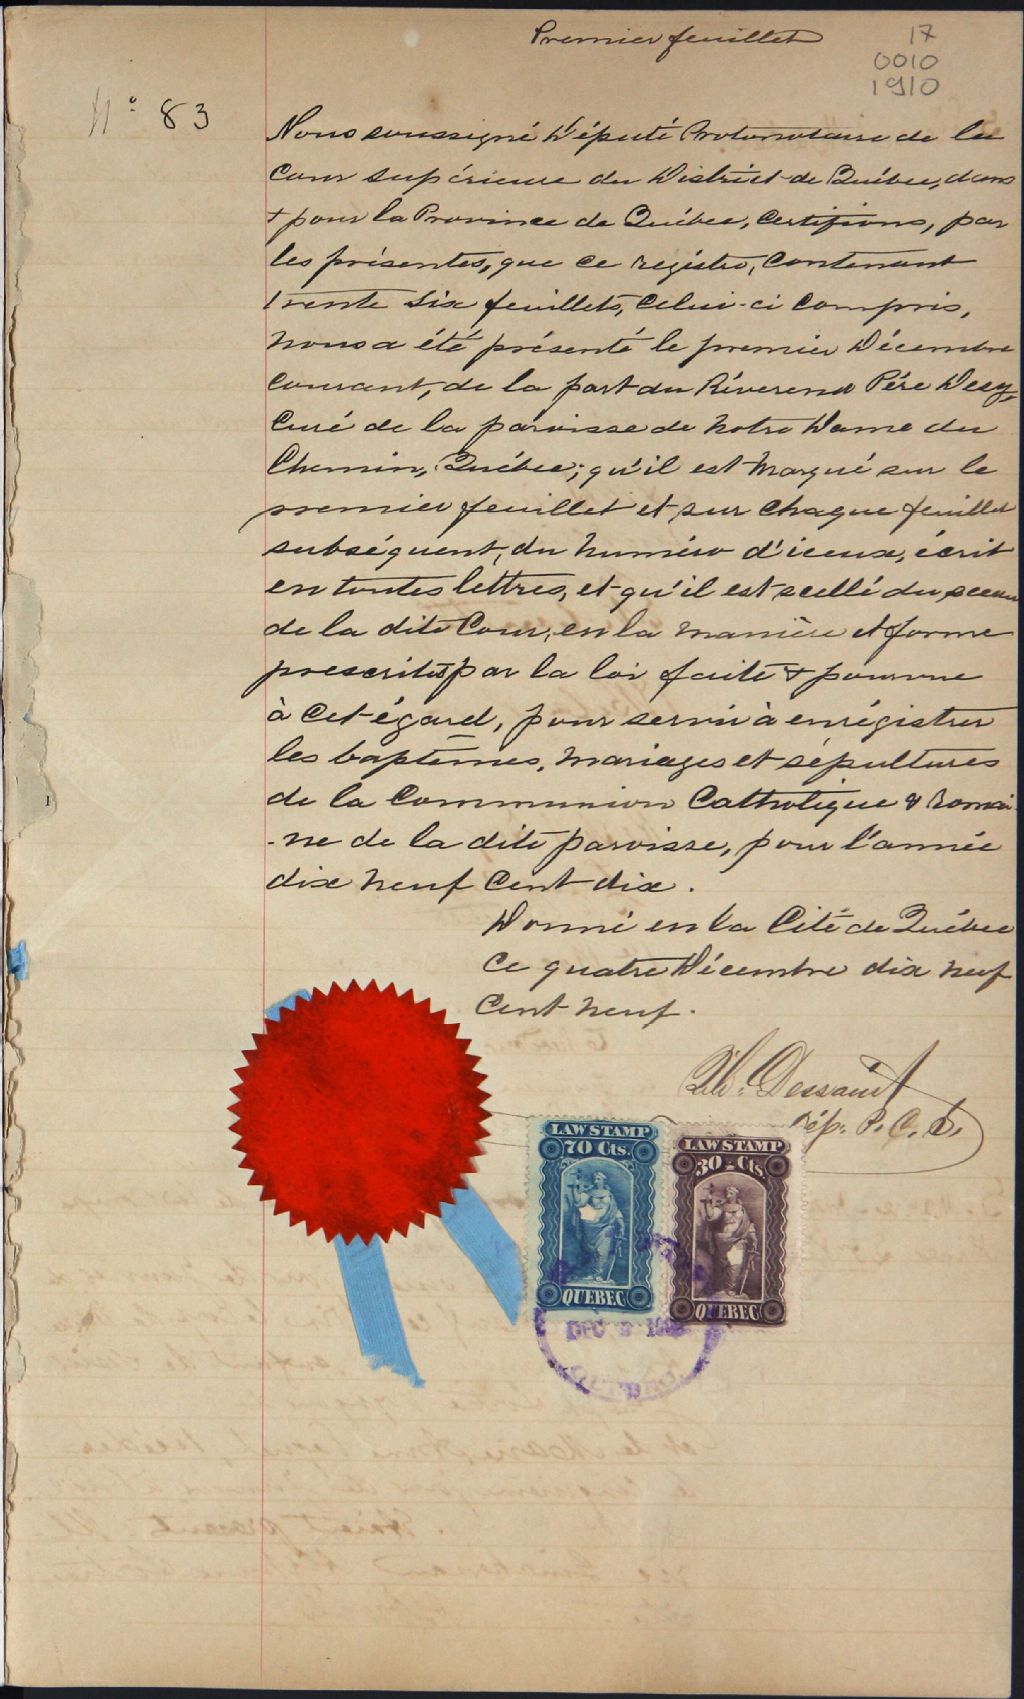 Premier feuillet
17
0010
1910
N° 83
Nous soussigné Député Protonotaire de la
Cour supérieure du District de Québec, dans
& pour la Province de Québec, Certifions, par
les présentes, que ce registre, Contenant
trente six feuillets, Celui-ci Compris,
nous a été présenté le premier Décembre
Courant, de la part du Réverend Père Désy,
Curé de la paroisse de Notre Dame du
Chemin, Québec; qu'il est Marqué sur le
premier feuillet et sur Chaque feuillet
subséquent, du numéro d'iceux, écrit
en toutes lettres, et qu'il est scellé du sceau
de la dite Cour, en la manière et forme
prescrites par la loi faite & pourvue
à Cet égard, pour servir à enrégistrer
les baptêmes, Mariages et sépultures
de la Communion Catholique & Romai
-ne de la dite paroisse, pour l'année
dix neuf Cent dix.
Donné en la Cité de Québec
Ce quatre Décembre dix neuf
Cent neuf.
Dessault
Dép. P. C. S.
LAW STAMP
70 Cts.
QUEBEC
LAW STAMP
30 - Cts.
QUEBEC
DEC